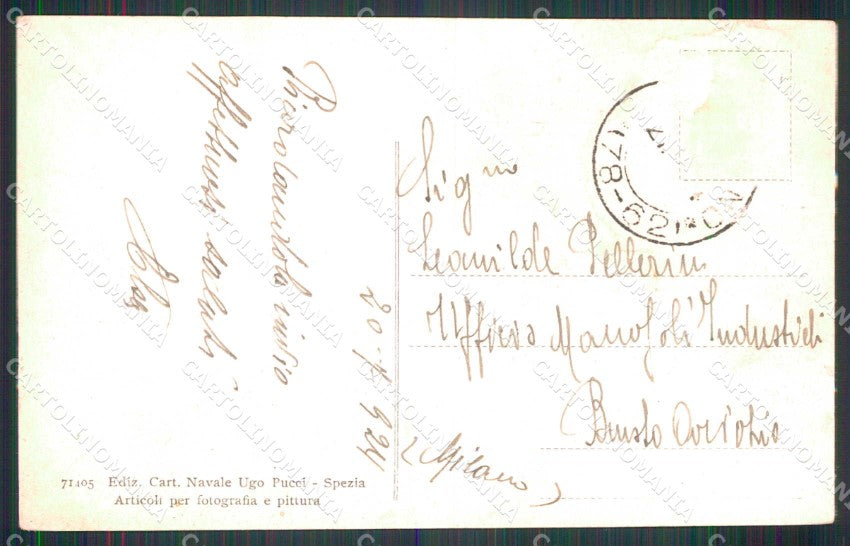 Ricordandola invio
affettuosi saluti
20-4-924
Sig na
Leonilde Pellerin
Ufficio Monopoli Industriali
Busto Arsizio
(Milano)
71405 Ediz. Cart. Navale Ugo Pucci - Spezia
Articoli per fotografia e pittura
(78-62)
CARTOLINOMANIA